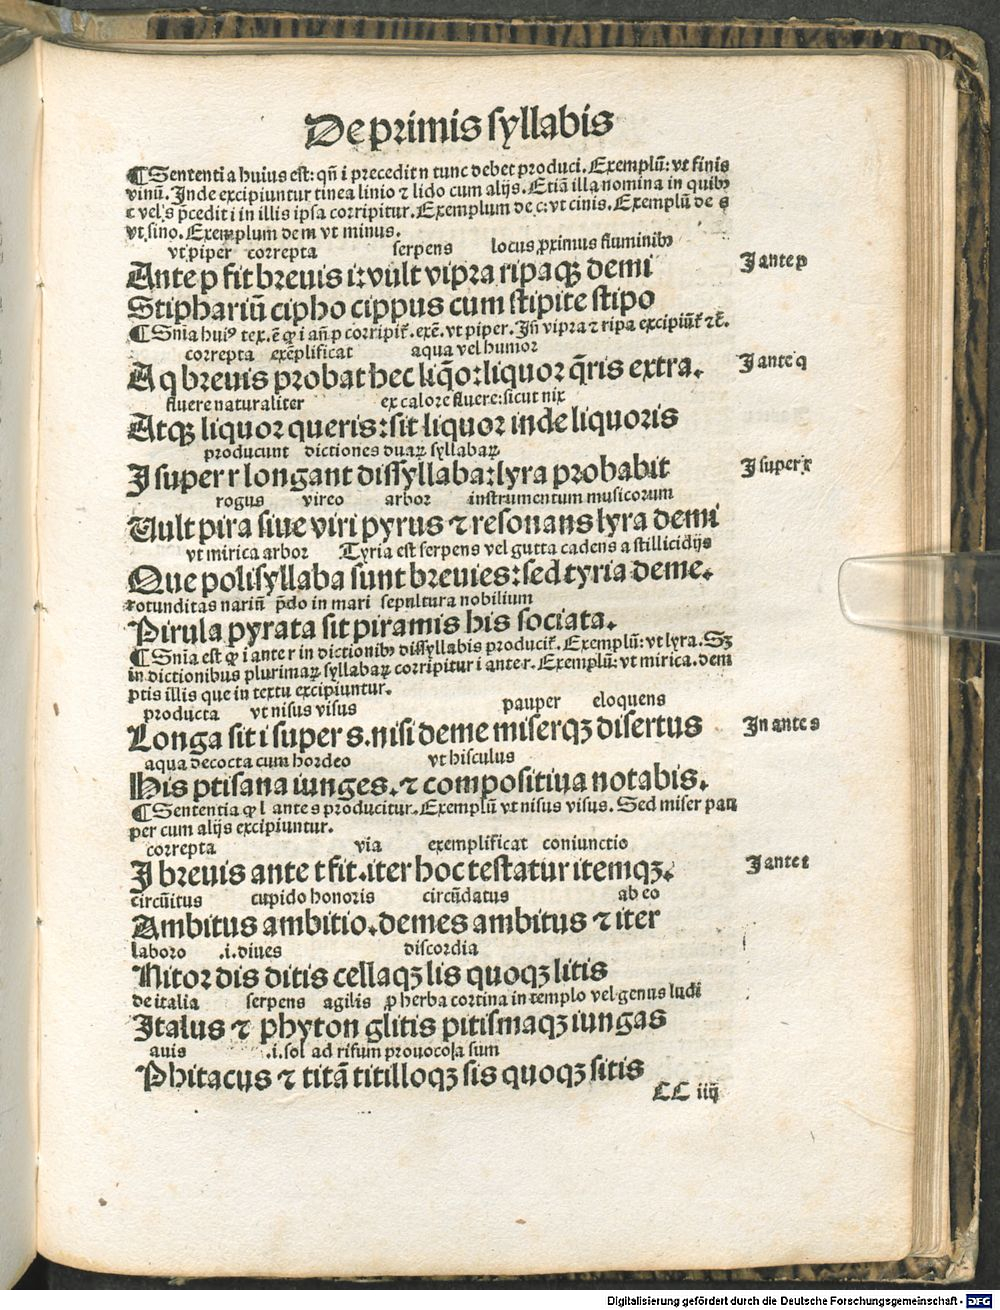 De primis syllabis
¶ Sententia huius est: qñ i precedit n tunc debet produci. Exemplũ: vt finis
vinũ. Inde excipiuntur tinea linio ⁊ lido cum alijs. Etiã illa nomina in quibꝰ
c vel s p̄cedit i in illis ipsa corripitur. Exemplum de c: vt cinis. Exemplũ de s
vt sino. Exemplum de m vt minus.
vt piper correpta serpens locus ꝓximus fluminibꝰ
Ante p fit breuis i: vult vipra ripaqꝫ demi
I ante p
Stiphariũ cipho cippus cum stipite stipo
¶ Snĩa huiꝰ tex. ẽ ꝙ i añ p corripit̃. exẽ. vt piper. Iñ vipra ⁊ ripa excipiũt̃ ⁊c̃.
correpta exẽplificat aqua vel humor
A q breuis probat hec liq̃o: liquor q̃ris extra.
I ante q
fluere naturaliter ex calore fluere: sicut nix
Atqꝫ liquor queris: sit liquor inde liquoris
producunt dictiones duaꝝ syllabaꝝ
I super r longant dissyllaba: lyra probabit
I super r
rogus vireo arbor instrumentum musicorum
Uult pira siue viri pyrus ⁊ resonans lyra demi
vt mirica arbor Tyria est serpens vel gutta cadens a stillicidijs
Que polisyllaba sunt breuies: sed tyria deme.
rotunditas nariũ p̃do in mari sepultura nobilium
Pirula pyrata sit piramis his sociata.
¶ Snĩa est ꝙ i ante r in dictionibꝰ dissyllabis producit̃. Exemplũ: vt lyra. Sꝫ
in dictionibus plurimaꝝ syllabaꝝ corripitur i ante r. Exemplũ: vt mirica. dem
ptis illis que in textu excipiuntur.
producta vt nisus visus pauper eloquens
Longa sit i super s. nisi deme miserqꝫ disertus
In ante s
aqua decocta cum hordeo vt hisculus
His ptisana iunges. ⁊ compositiua notabis.
¶ Sententia ꝙ I ante s producitur. Exemplũ vt nisus visus. Sed miser pau
per cum alijs excipiuntur.
correpta via exemplificat coniunctio
I breuis ante t fit. iter hoc testatur itemqꝫ.
I ante t
circũitus cupido honoris circũdatus ab eo
Ambitus ambitio. demes ambitus ⁊ iter
laboro .i. diues discordia
Nitor dis ditis cellaqꝫ lis quoqꝫ litis
de italia serpens agilis ꝓ herba cortina in templo vel genus ludi
Italus ⁊ phyton glitis pitismaqꝫ iungas
auis .i. sol ad risum prouoco sa sum
Phitacus ⁊ titã titilloqꝫ sis quoqꝫ sitis
CC iiij
Digitalisierung gefördert durch die Deutsche Forschungsgemeinschaft - DFG